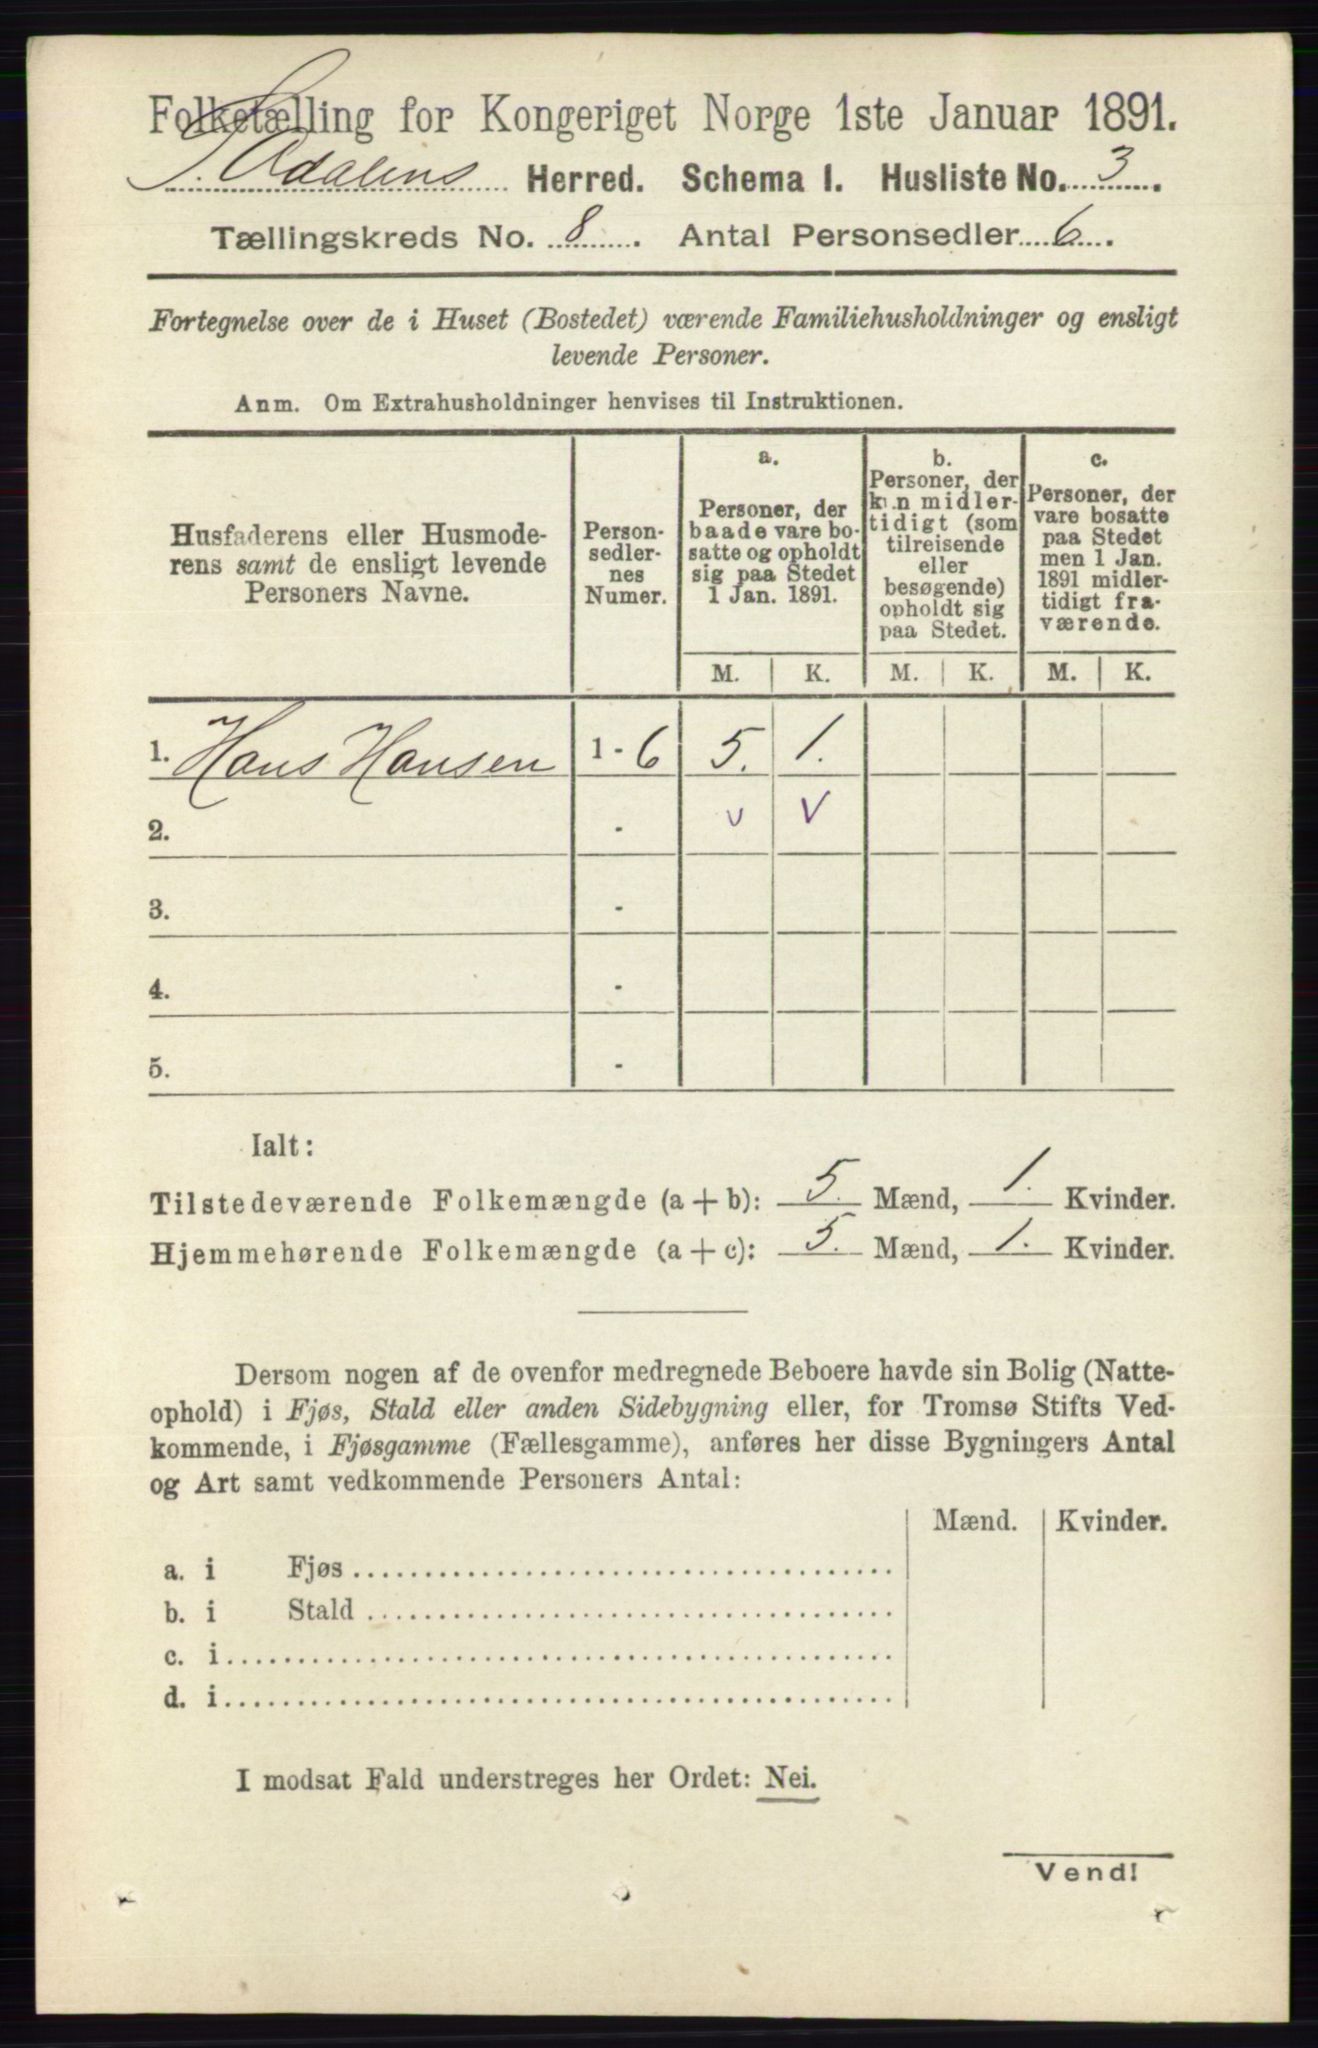 Folketælling for Kongeriget Norge 1ste Januar 1891.
S. Ádalens Herred. Schema I. Husliste No. 3.
Tællingskreds No. 8. Antal Personsedler 6.
Fortegnelse over de i Huset (Bostedet) værende Familiehusholdninger og ensligt
levende Personer.
Anm. Om Extrahusholdninger henvises til Instruktionen.
Husfaderens eller Husmode-
rens samt de ensligt levende
Personers Navne.
Person-
sedler-
nes
Numer.
a.
Personer, der
baade vare bo-
satte og opholdt
sig paa Stedet
1 Jan. 1891.
b.
Personer, der
kun midler-
tidigt (som
tilreisende
eller
besøgende)
opholdt sig
paa Stedet.
c.
Personer, der
vare bosatte
paa Stedet
men 1 Jan.
1891 midler-
tidigt fra-
værende.
M. K. M. K. M. K.
1. Hans Hansen 1 - 6 5. 1.
2. - v v
3. -
4. -
5. -
Ialt:
Tilstedeværende Folkemængde (a + b): 5. Mænd, 1. Kvinder.
Hjemmehørende Folkemængde (a + c): 5. Mænd, 1. Kvinder.
Dersom nogen af de ovenfor medregnede Beboere havde sin Bolig (Natte-
ophold) i Fjøs, Stald eller anden Sidebygning eller, for Tromsø Stifts Ved-
kommende, i Fjøsgamme (Fællesgamme), anføres her disse Bygningers Antal
og Art samt vedkommende Personers Antal:
Mænd. Kvinder.
a. i Fjøs
b. i Stald
c. i
d. i
I modsat Fald understreges her Ordet: Nei.
Vend!